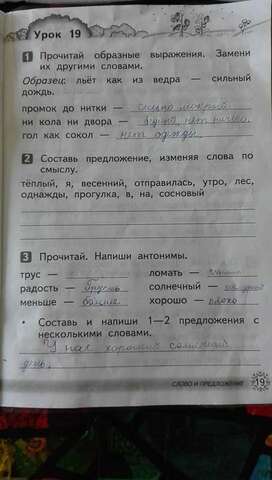 Урок 19
1 Прочитай образные выражения. Замени
их другими словами.
Образец: льёт как из ведра — сильный
дождь.
промок до нитки — сильно мокрый
ни кола ни двора — нет ничего.
гол как сокол — нет одежды
2 Составь предложение, изменяя слова по
смыслу.
тёплый, я, весенний, отправилась, утро, лес,
однажды, прогулка, в, на, сосновый
3 Прочитай. Напиши антонимы.
трус — ломать —
радость — грусть солнечный —
меньше — больше хорошо — плохо
• Составь и напиши 1—2 предложения с
несколькими словами.
У нас хороший солнечный
день.
СЛОВО И ПРЕДЛОЖЕНИЕ 19